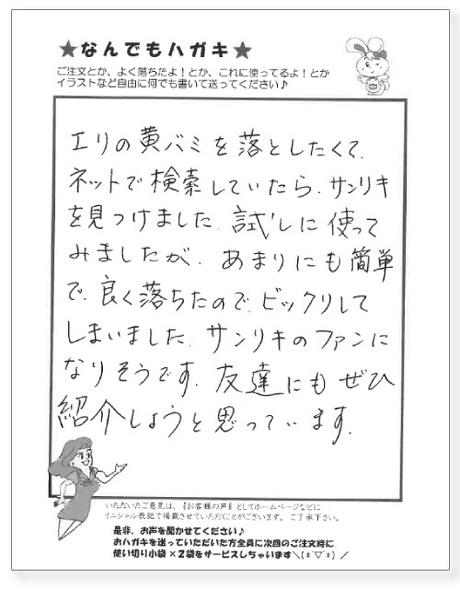 ★なんでもハガキ★
ご注文とか、よく落ちたよ！とか、これに使ってるよ！とか
イラストなど自由に何でも書いて送ってください♪
エリの黄バミを落としたくて、
ネットで検索していたら、サンリキ
を見つけました。試しに使って
みましたが、あまりにも簡単
で、良く落ちたので、ビックリして
しまいました。サンリキのファンに
なりそうです。友達にもぜひ
紹介しようと思っています。
いただいたご意見は、『お客様の声』としてホームページなどに
イニシャル表記で掲載させていただくことがございます。ご了承下さい。
是非、お声を聞かせてください♪
おハガキを送っていただいた方全員に次回のご注文時に
使い切り小袋×２袋をサービスしちゃいます＼(*ˊ▽ˋ*)／